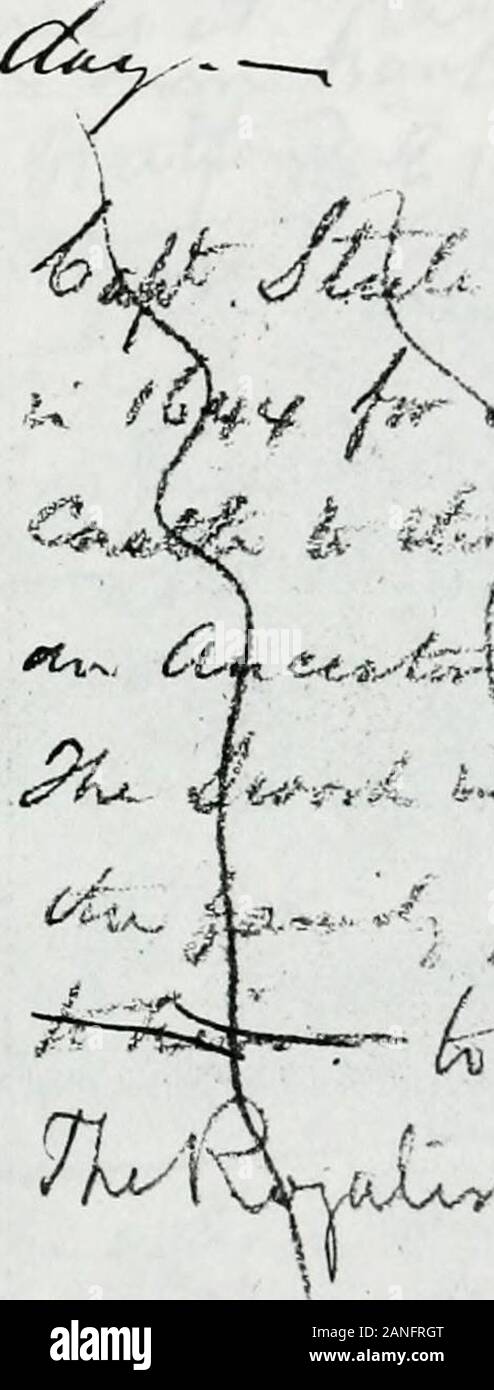 day. —
Capt. State
in 1644 for
Castle to the
an Ancestor
The Sword
the family
to
The Royalis
alamy
Image ID: ANFRGT
www.alamy.com